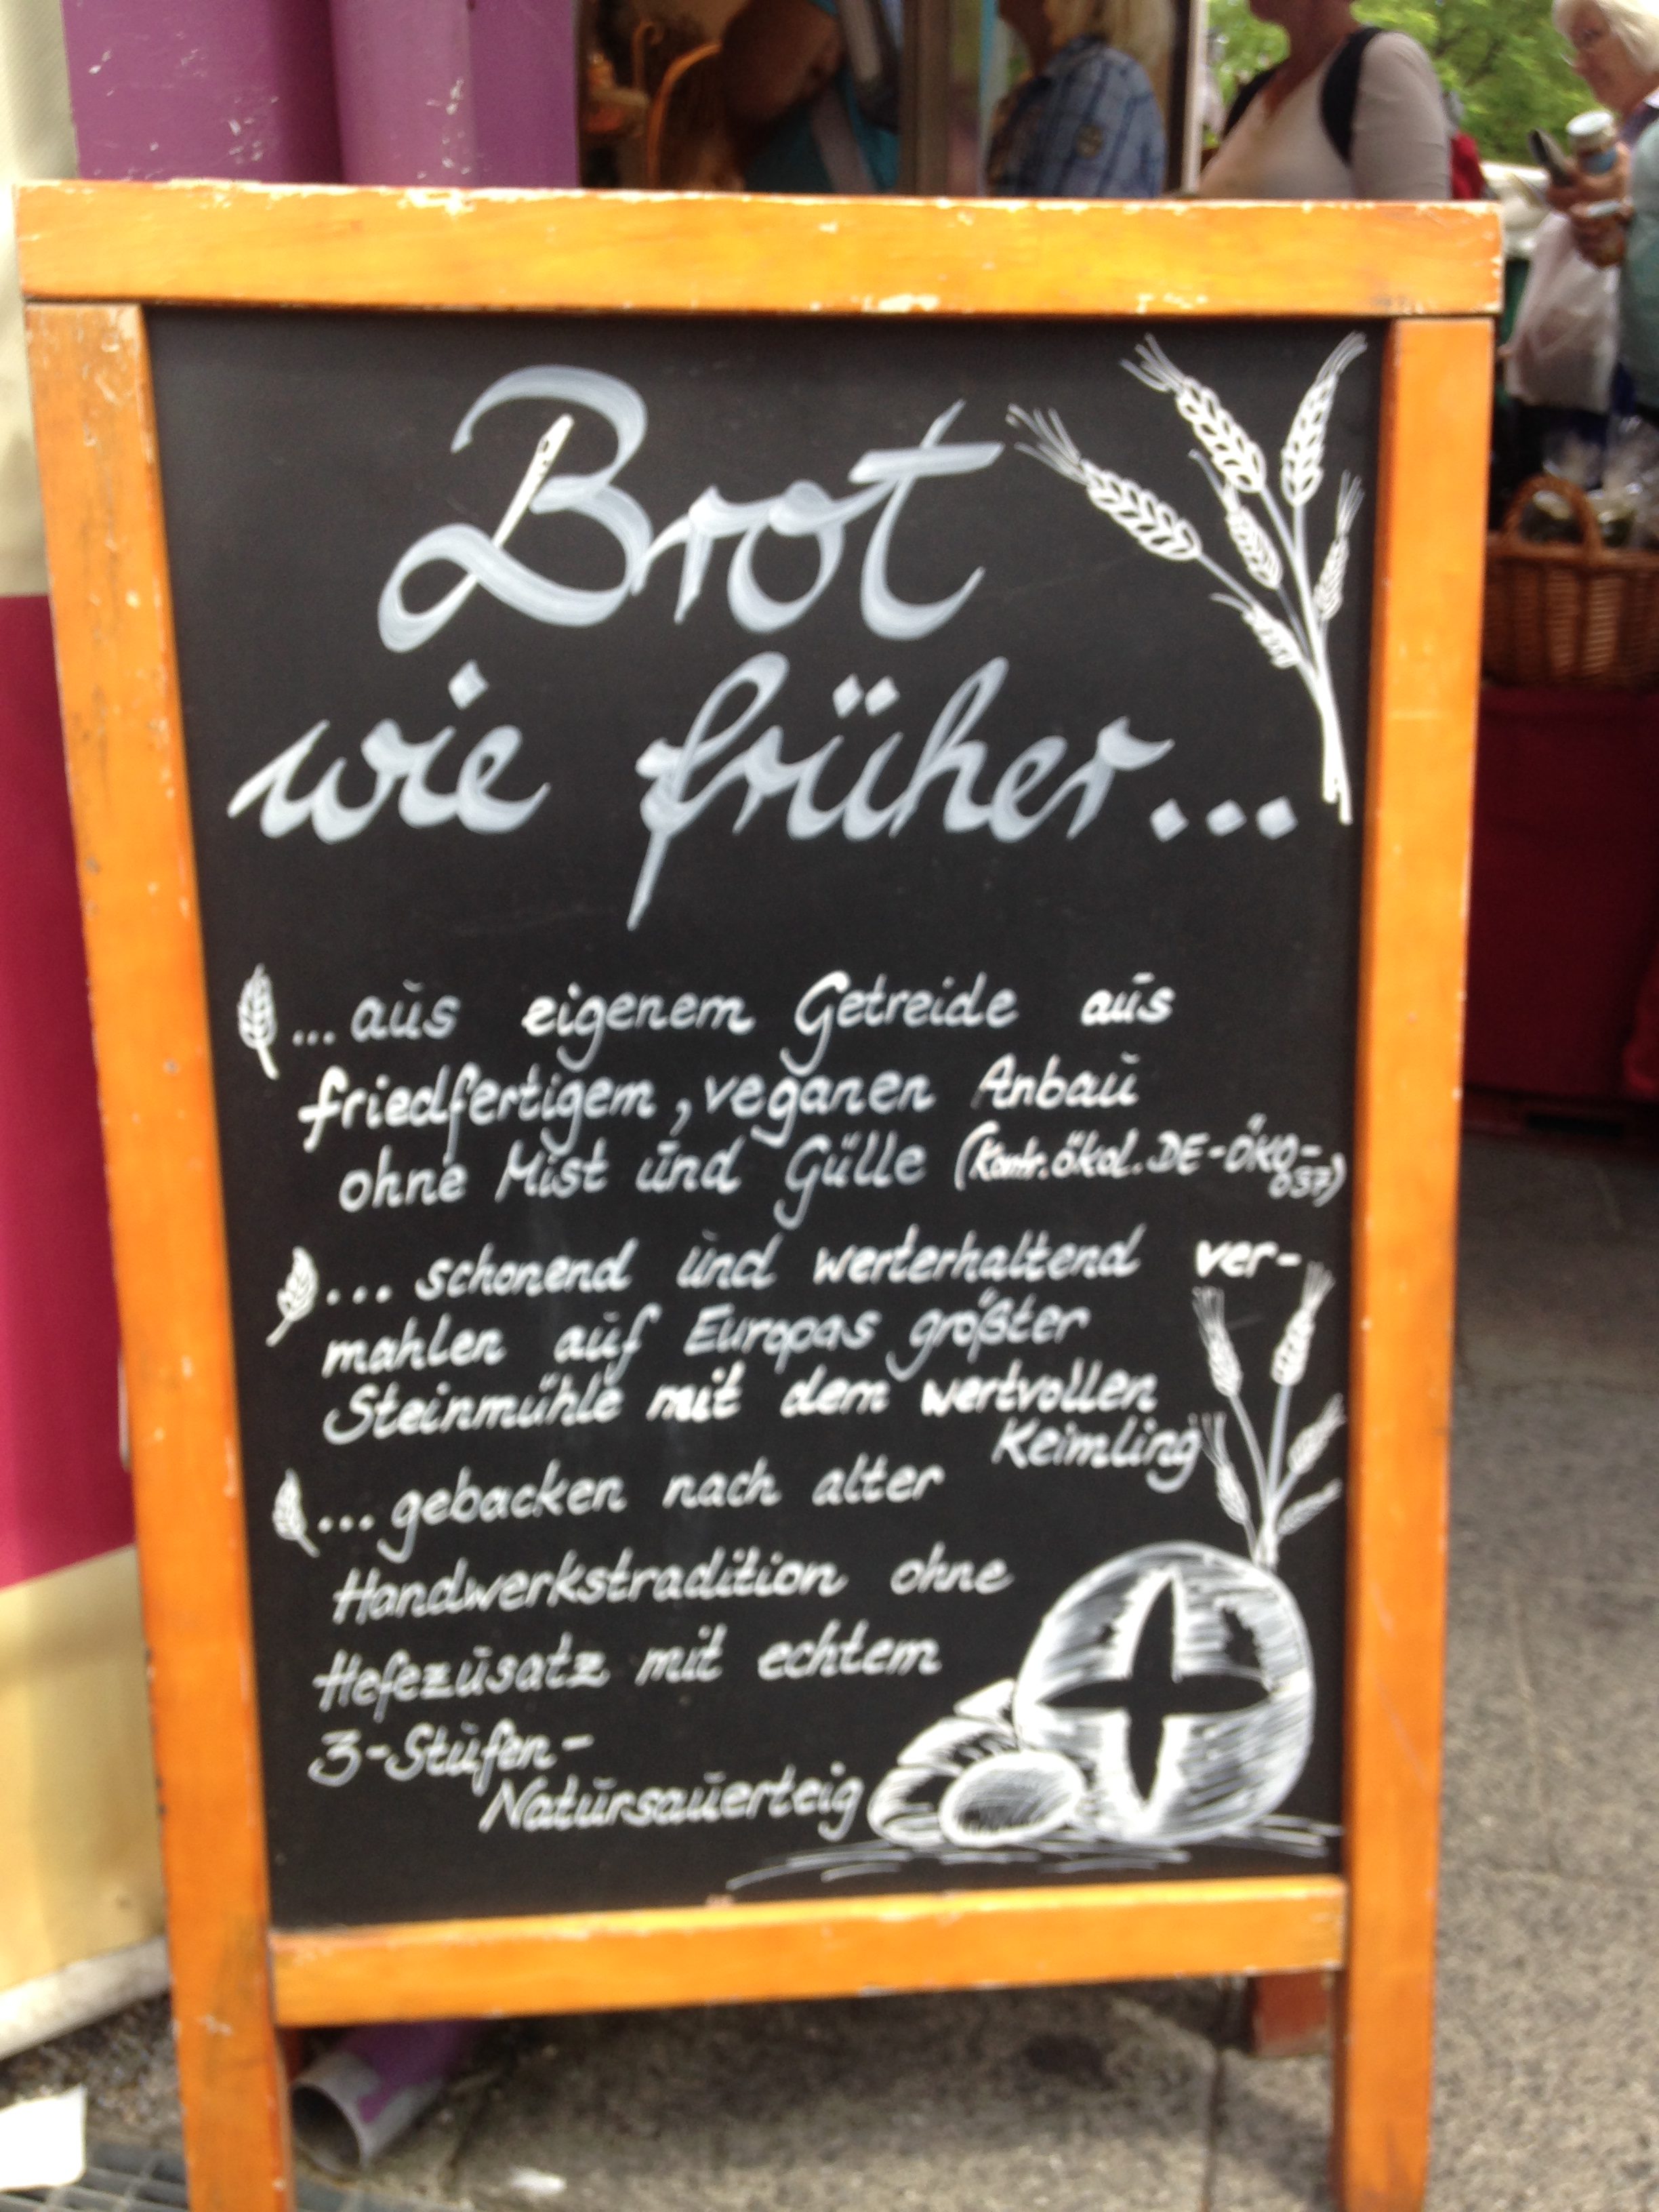 Brot
wie früher...
... aus eigenem Getreide aus
friedfertigem, veganen Anbau
ohne Mist und Gülle (Kontr. ökol. DE-ÖKO-
037)
... schonend und werterhaltend ver-
mahlen auf Europas größter
Steinmühle mit dem wertvollen
Keimling
... gebacken nach alter
Handwerkstradition ohne
Hefezusatz mit echtem
3-Stufen-
Natursauerteig